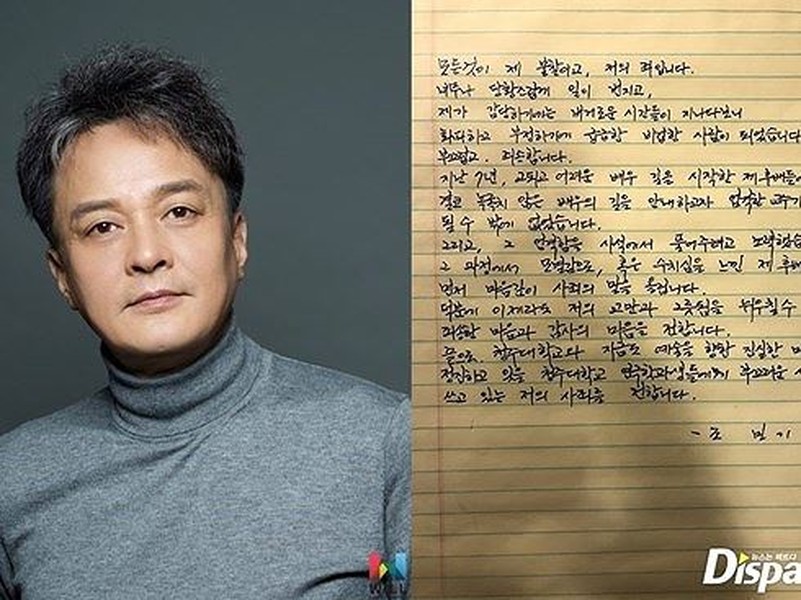 모든것이 제 불찰이고, 저의 죄입니다.
너무나 당황스럽게 일이 번지고,
제가 감당하기에는 버거운 시간들이 지나다보니
회피하고 부정하기에 급급한 비겁한 사람이 되었습니다
부끄럽고. 죄송합니다.
지난 7년, 고되고 어려운 배우 길을 시작한 제 후배들에
결코 녹록지 않은 배우의 길을 안내하고자 엄격한 교수가
될 수 밖에 없었습니다.
그리고, 그 엄격함을 사석에서 풀어주려고 노력했습
그 과정에서 모멸감으로, 혹은 수치심을 느낀 제 후배
먼저 마음깊이 사죄의 말을 올립니다.
덕분에 이제라도 저의 교만과 그릇됨을 뉘우칠 수
죄송한 마음과 감사의 마음을 전합니다.
끝으로, 청주대학교와 지금도 예술을 향한 진실한 마
정진하고 있을 청주대학교 연극학과 학생들에게 부끄러운
쓰고 있는 저의 사죄를 전합니다.
- 조 민 기
뉴스는 팩트다
Dispa